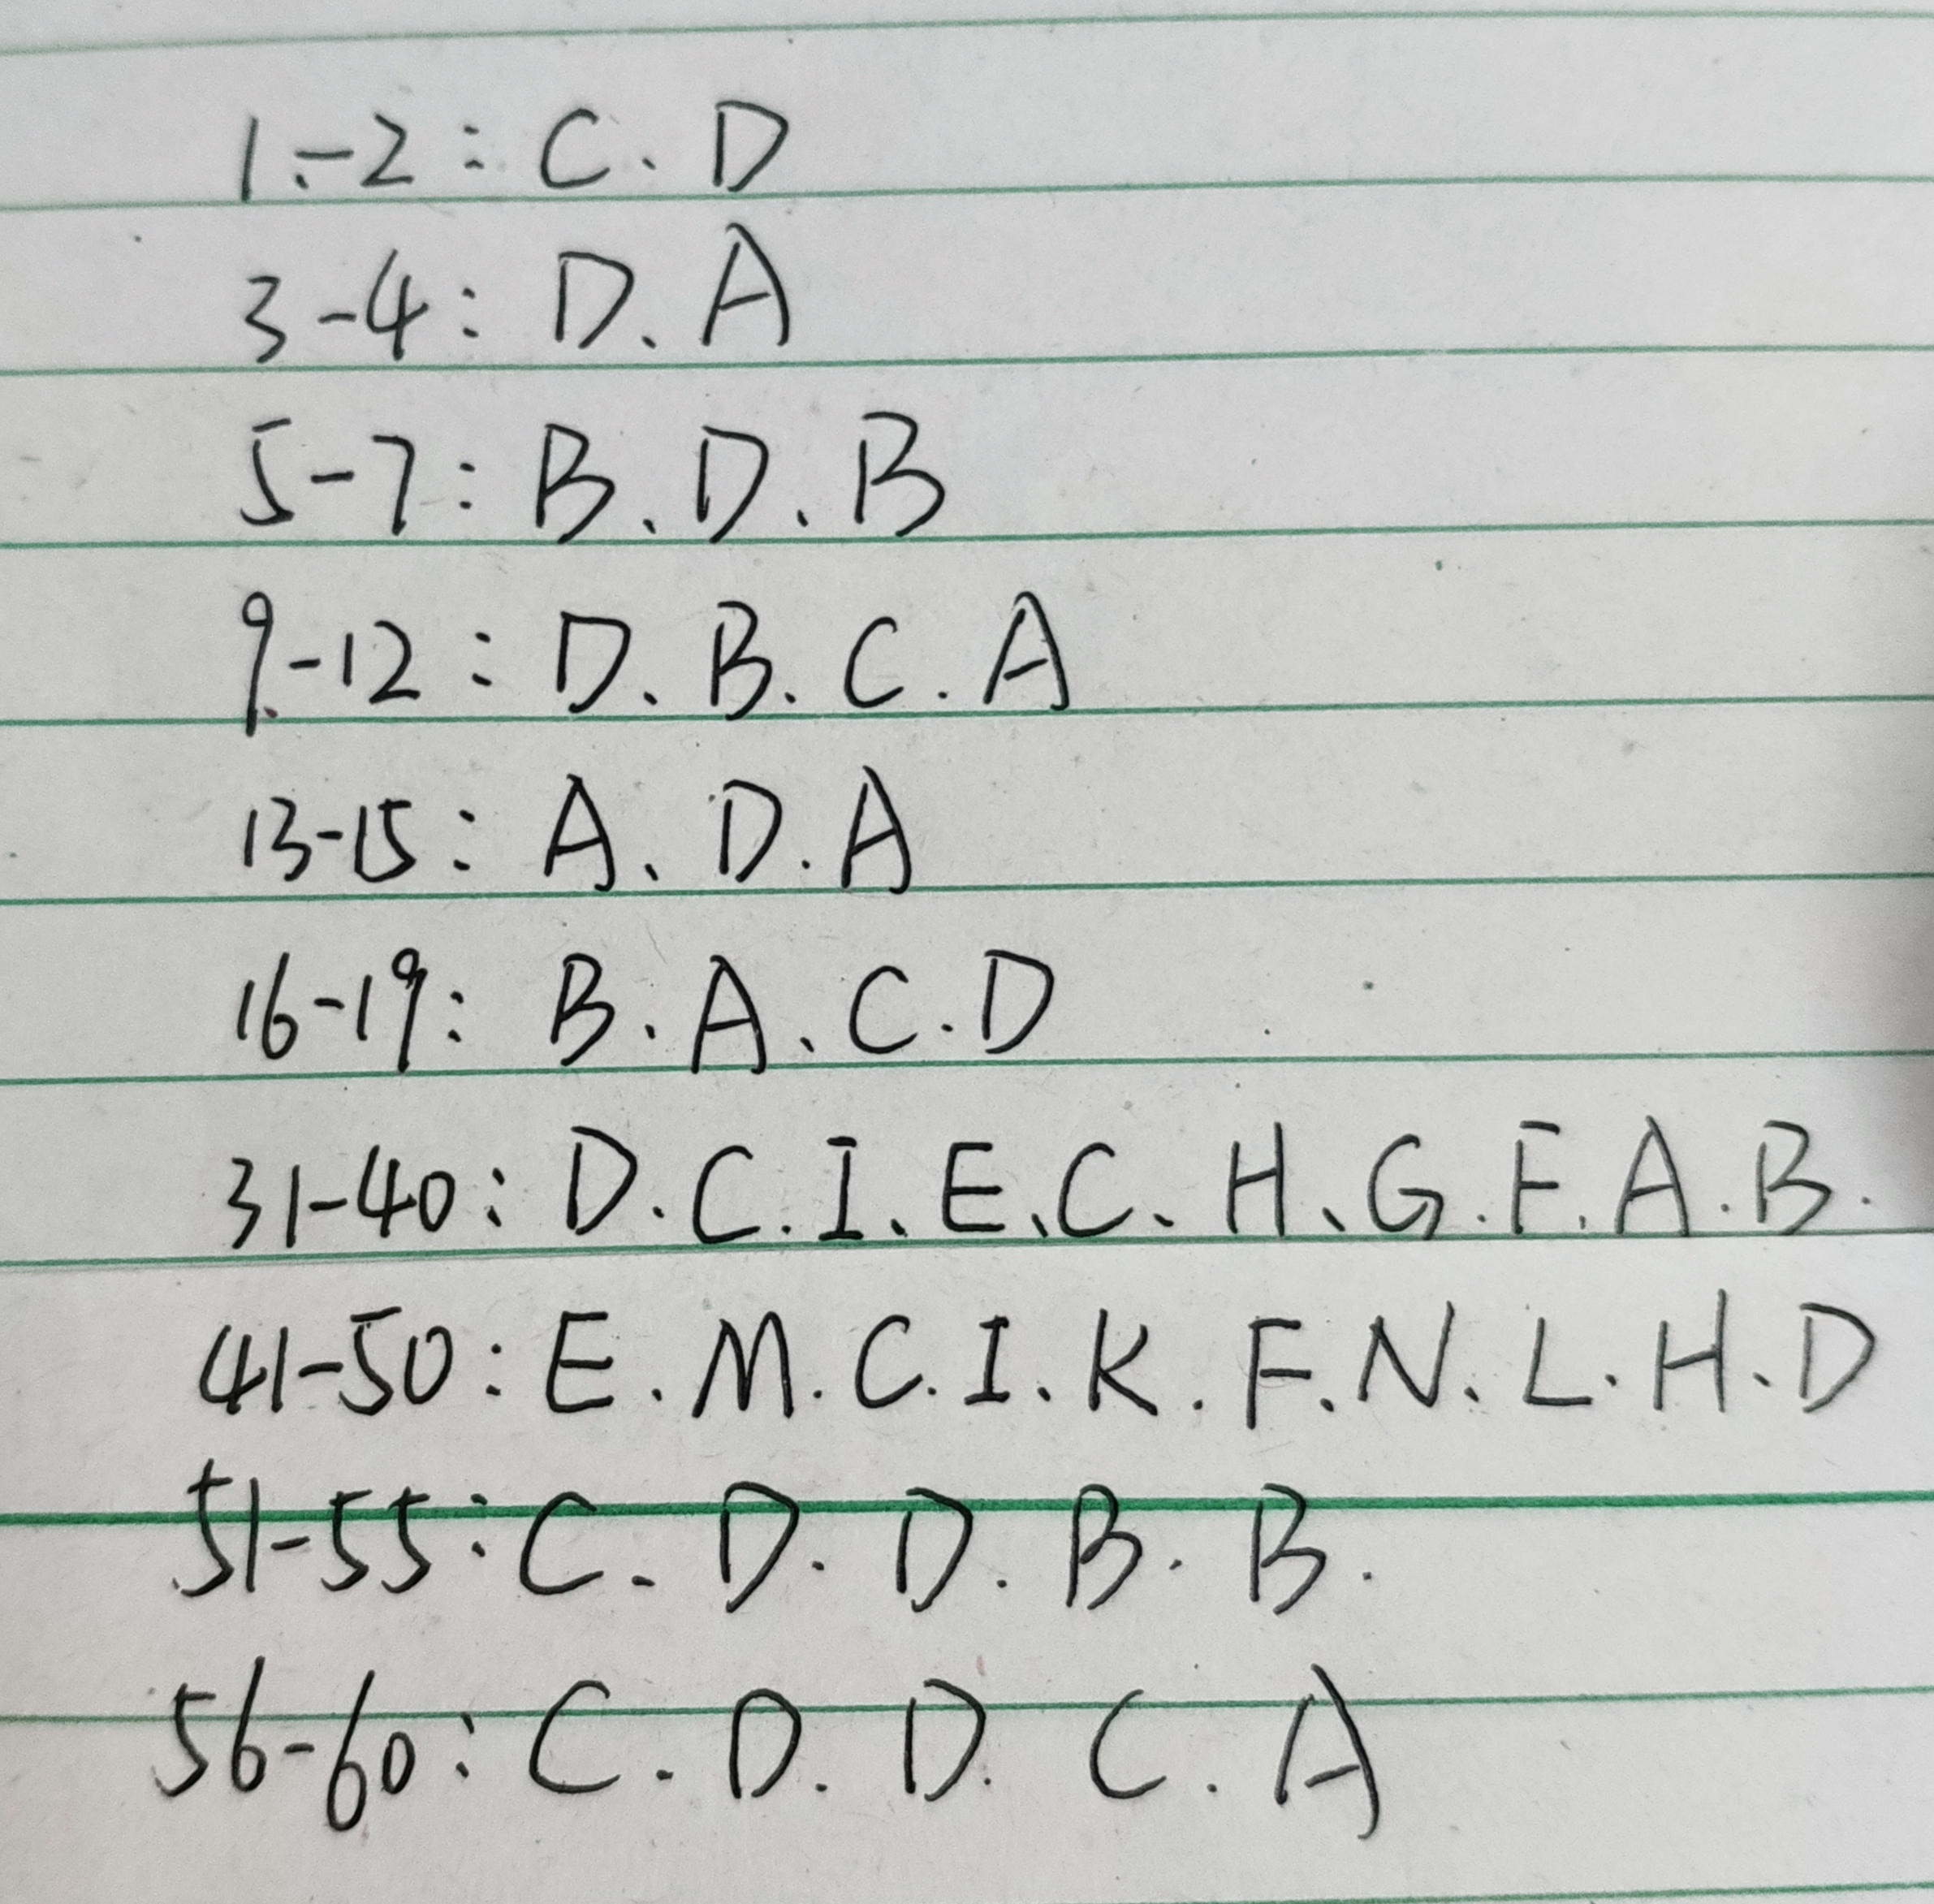 1-2: C. D
3-4: D. A
5-7: B. D. B
9-12: D. B. C. A
13-15: A. D. A
16-19: B. A. C. D
31-40: D. C. I. E. C. H. G. F. A. B.
41-50: E. M. C. I. K. F. N. L. H. D
51-55: C. D. D. B. B.
56-60: C. D. D. C. A